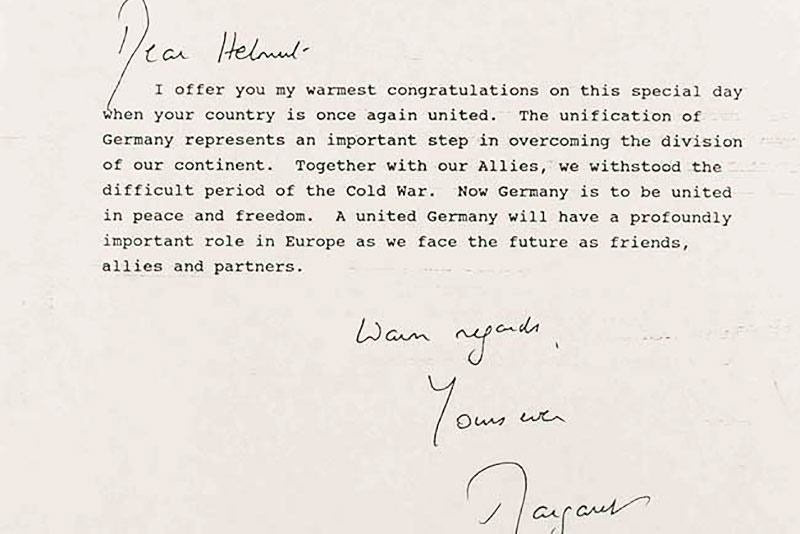 Dear Helmut
I offer you my warmest congratulations on this special day
when your country is once again united. The unification of
Germany represents an important step in overcoming the division
of our continent. Together with our Allies, we withstood the
difficult period of the Cold War. Now Germany is to be united
in peace and freedom. A united Germany will have a profoundly
important role in Europe as we face the future as friends,
allies and partners.
Warm regards,
Yours ever
Margaret